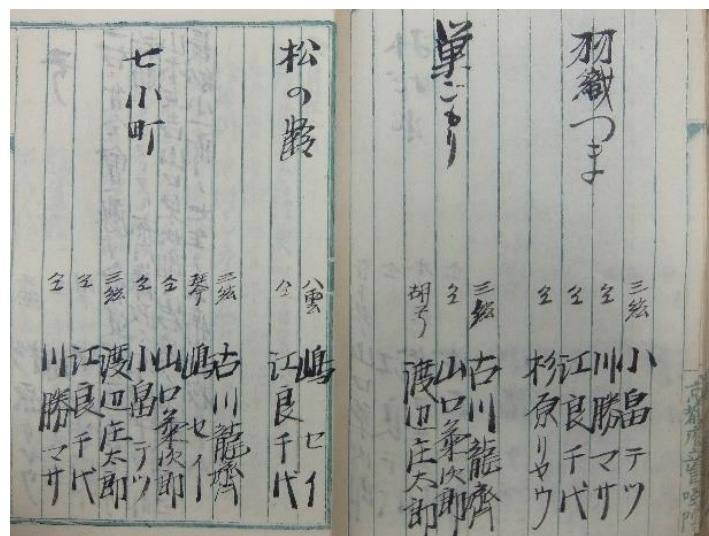 羽織つま
三絃 小畠テツ
仝 川勝マサ
仝 江良千代
仝 杉原リヤウ
巣ごもり
三絃 古川龍齊
仝 山口菊次郎
胡弓 渡辺庄太郎
松の齢
八雲 嶋セイ
仝 江良千代
七小町
三絃 古川龍齊
琴 嶋セイ
仝 山口菊次郎
仝 小畠テツ
三絃 渡辺庄太郎
仝 江良千代
仝 川勝マサ